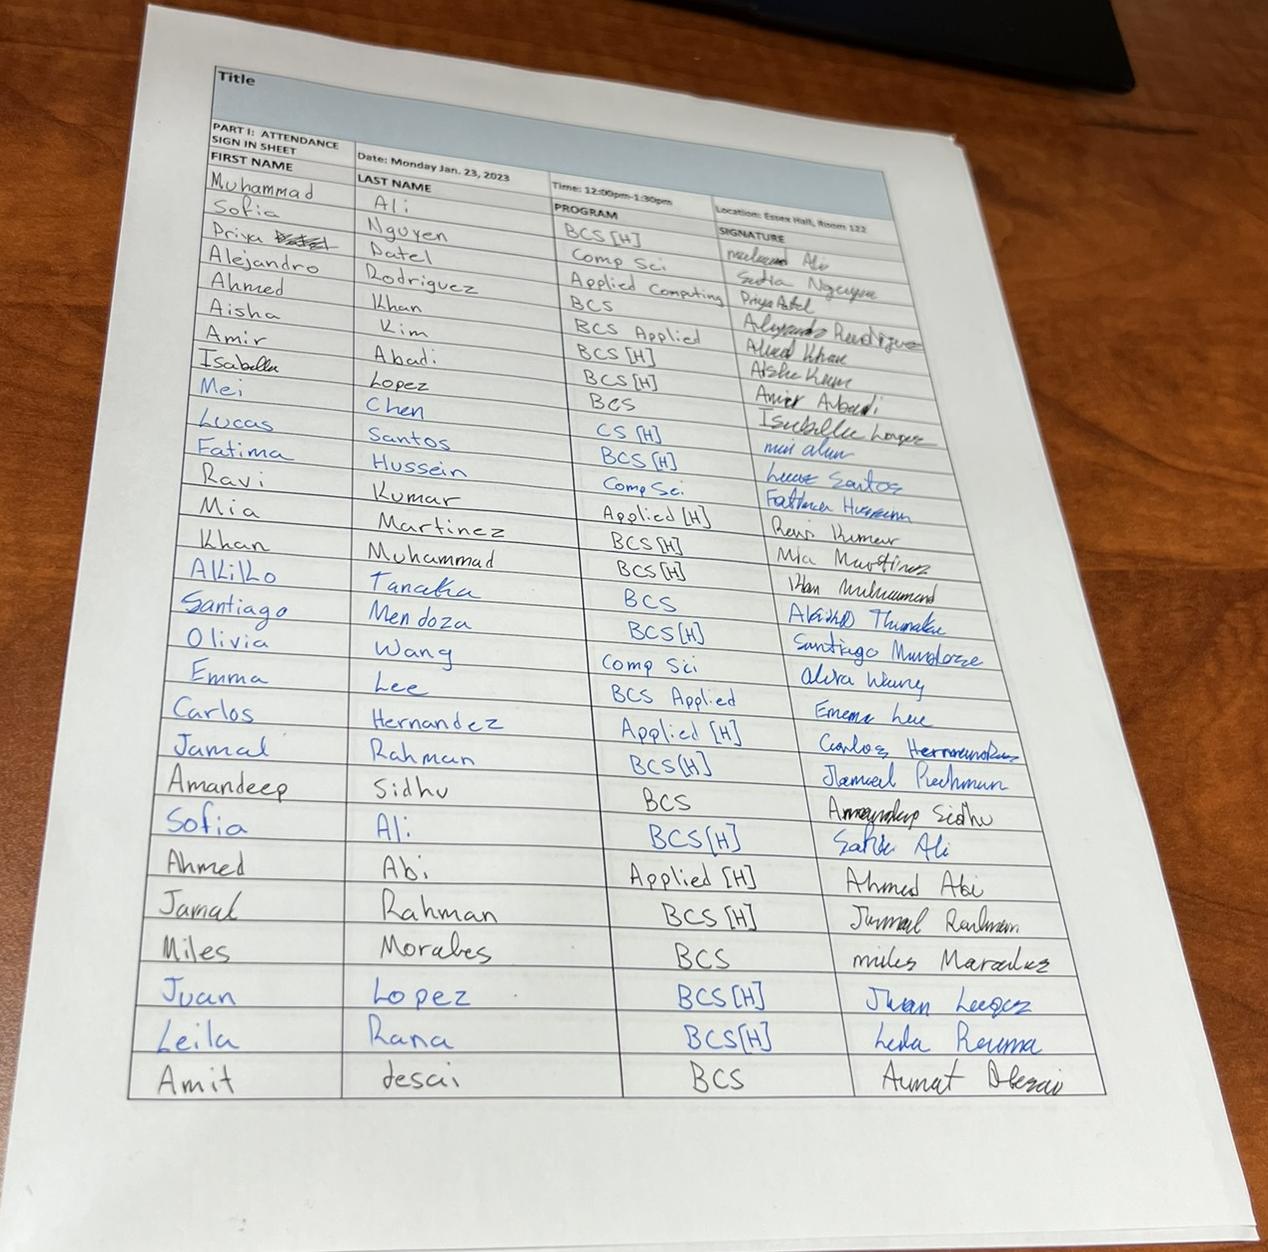 Title
PART I: ATTENDANCE SIGN IN SHEET Date: Monday Jan. 23, 2023 Time: 12:00pm-1:30pm Location: Essex Hall, Room 122
FIRST NAME LAST NAME PROGRAM SIGNATURE
Muhammad Ali BCS [H] Ali
Sofia Nguyen Comp Sci Sofia Nguyen
Priya Patel Applied Computing Priya Patel
Alejandro Rodriguez BCS Rodriguez
Ahmed Khan BCS Applied Ahmed Khan
Aisha Kim BCS [H] Aisha Kim
Amir Abadi BCS [H] Amir Abadi
Isabella Lopez BCS Isabella Lopez
Mei Chen CS [H]
Lucas Santos BCS [H] Lucas Santos
Fatima Hussein Comp Sci Fatima Hussein
Ravi Kumar Applied [H] Ravi Kumar
Mia Martinez BCS [H] Mia Martinez
Khan Muhammad BCS [H] Khan Muhammad
Akiko Tanaka BCS
Santiago Mendoza BCS[H] Santiago
Olivia Wang Comp Sci Wang
Emma Lee BCS Applied Emma Lee
Carlos Hernandez Applied [H] Carlos
Jamal Rahman BCS[H] Jamal Rahman
Amandeep Sidhu BCS Sidhu
Sofia Ali BCS[H] Ali
Ahmed Abi Applied [H] Ahmed Abi
Jamal Rahman BCS [H] Jamal Rahman
Miles Morales BCS miles
Juan Lopez BCS[H] Juan
Leila Rana BCS[H] Leila
Amit desai BCS